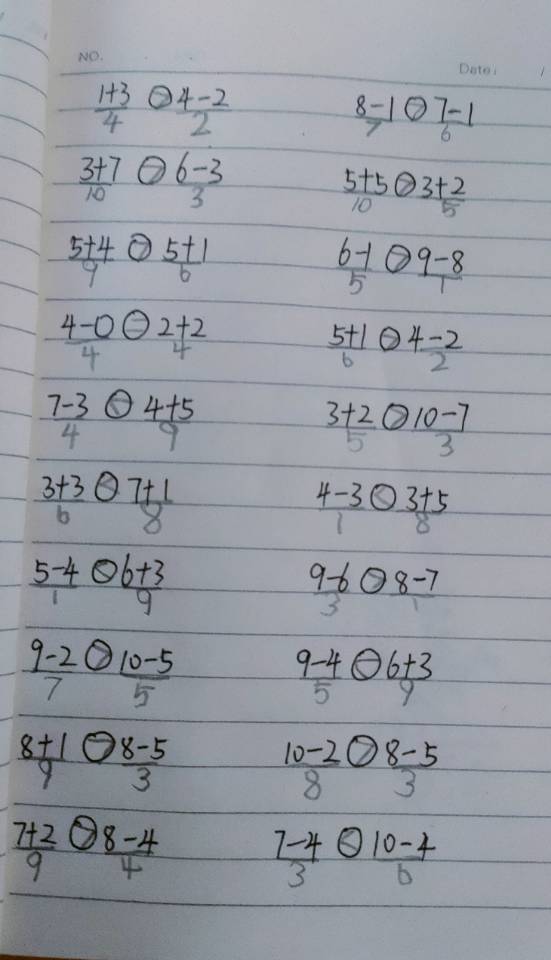 NO.
Date: /
1+3 > 4-2 8-1 > 7-1
4 2 7 6
3+7 > 6-3 5+5 > 3+2
10 3 10 5
5+4 > 5+1 6-1 > 9-8
9 6 5 1
4-0 = 2+2 5+1 > 4-2
4 4 6 2
7-3 < 4+5 3+2 > 10-7
4 9 5 3
3+3 < 7+1 4-3 < 3+5
6 8 1 8
5-4 < 6+3 9-6 > 8-7
1 9 3 1
9-2 > 10-5 9-4 < 6+3
7 5 5 9
8+1 > 8-5 10-2 > 8-5
9 3 8 3
7+2 > 8-4 7-4 < 10-4
9 4 3 6